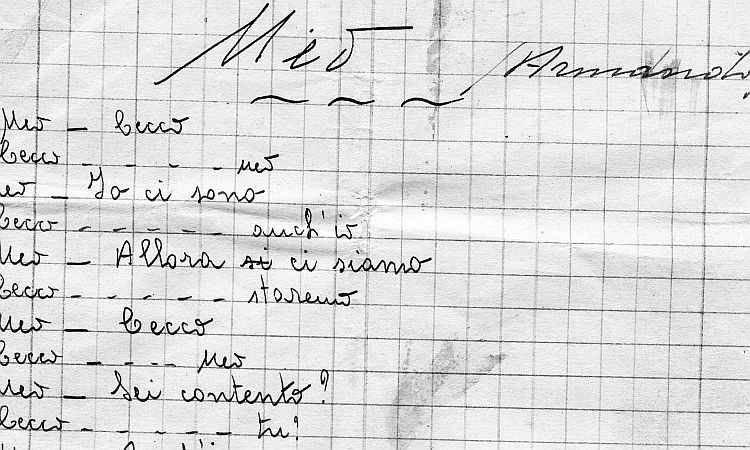 Meo (Armando)
Meo - Cecco
Cecco - - - - - meo
Meo - Io ci sono
Cecco - - - - - anch'io
Meo - Allora si ci siamo
Cecco - - - - - staremo
Meo - Cecco
Cecco - - - - Meo
Meo - Sei contento?
Cecco - - - - - tu?